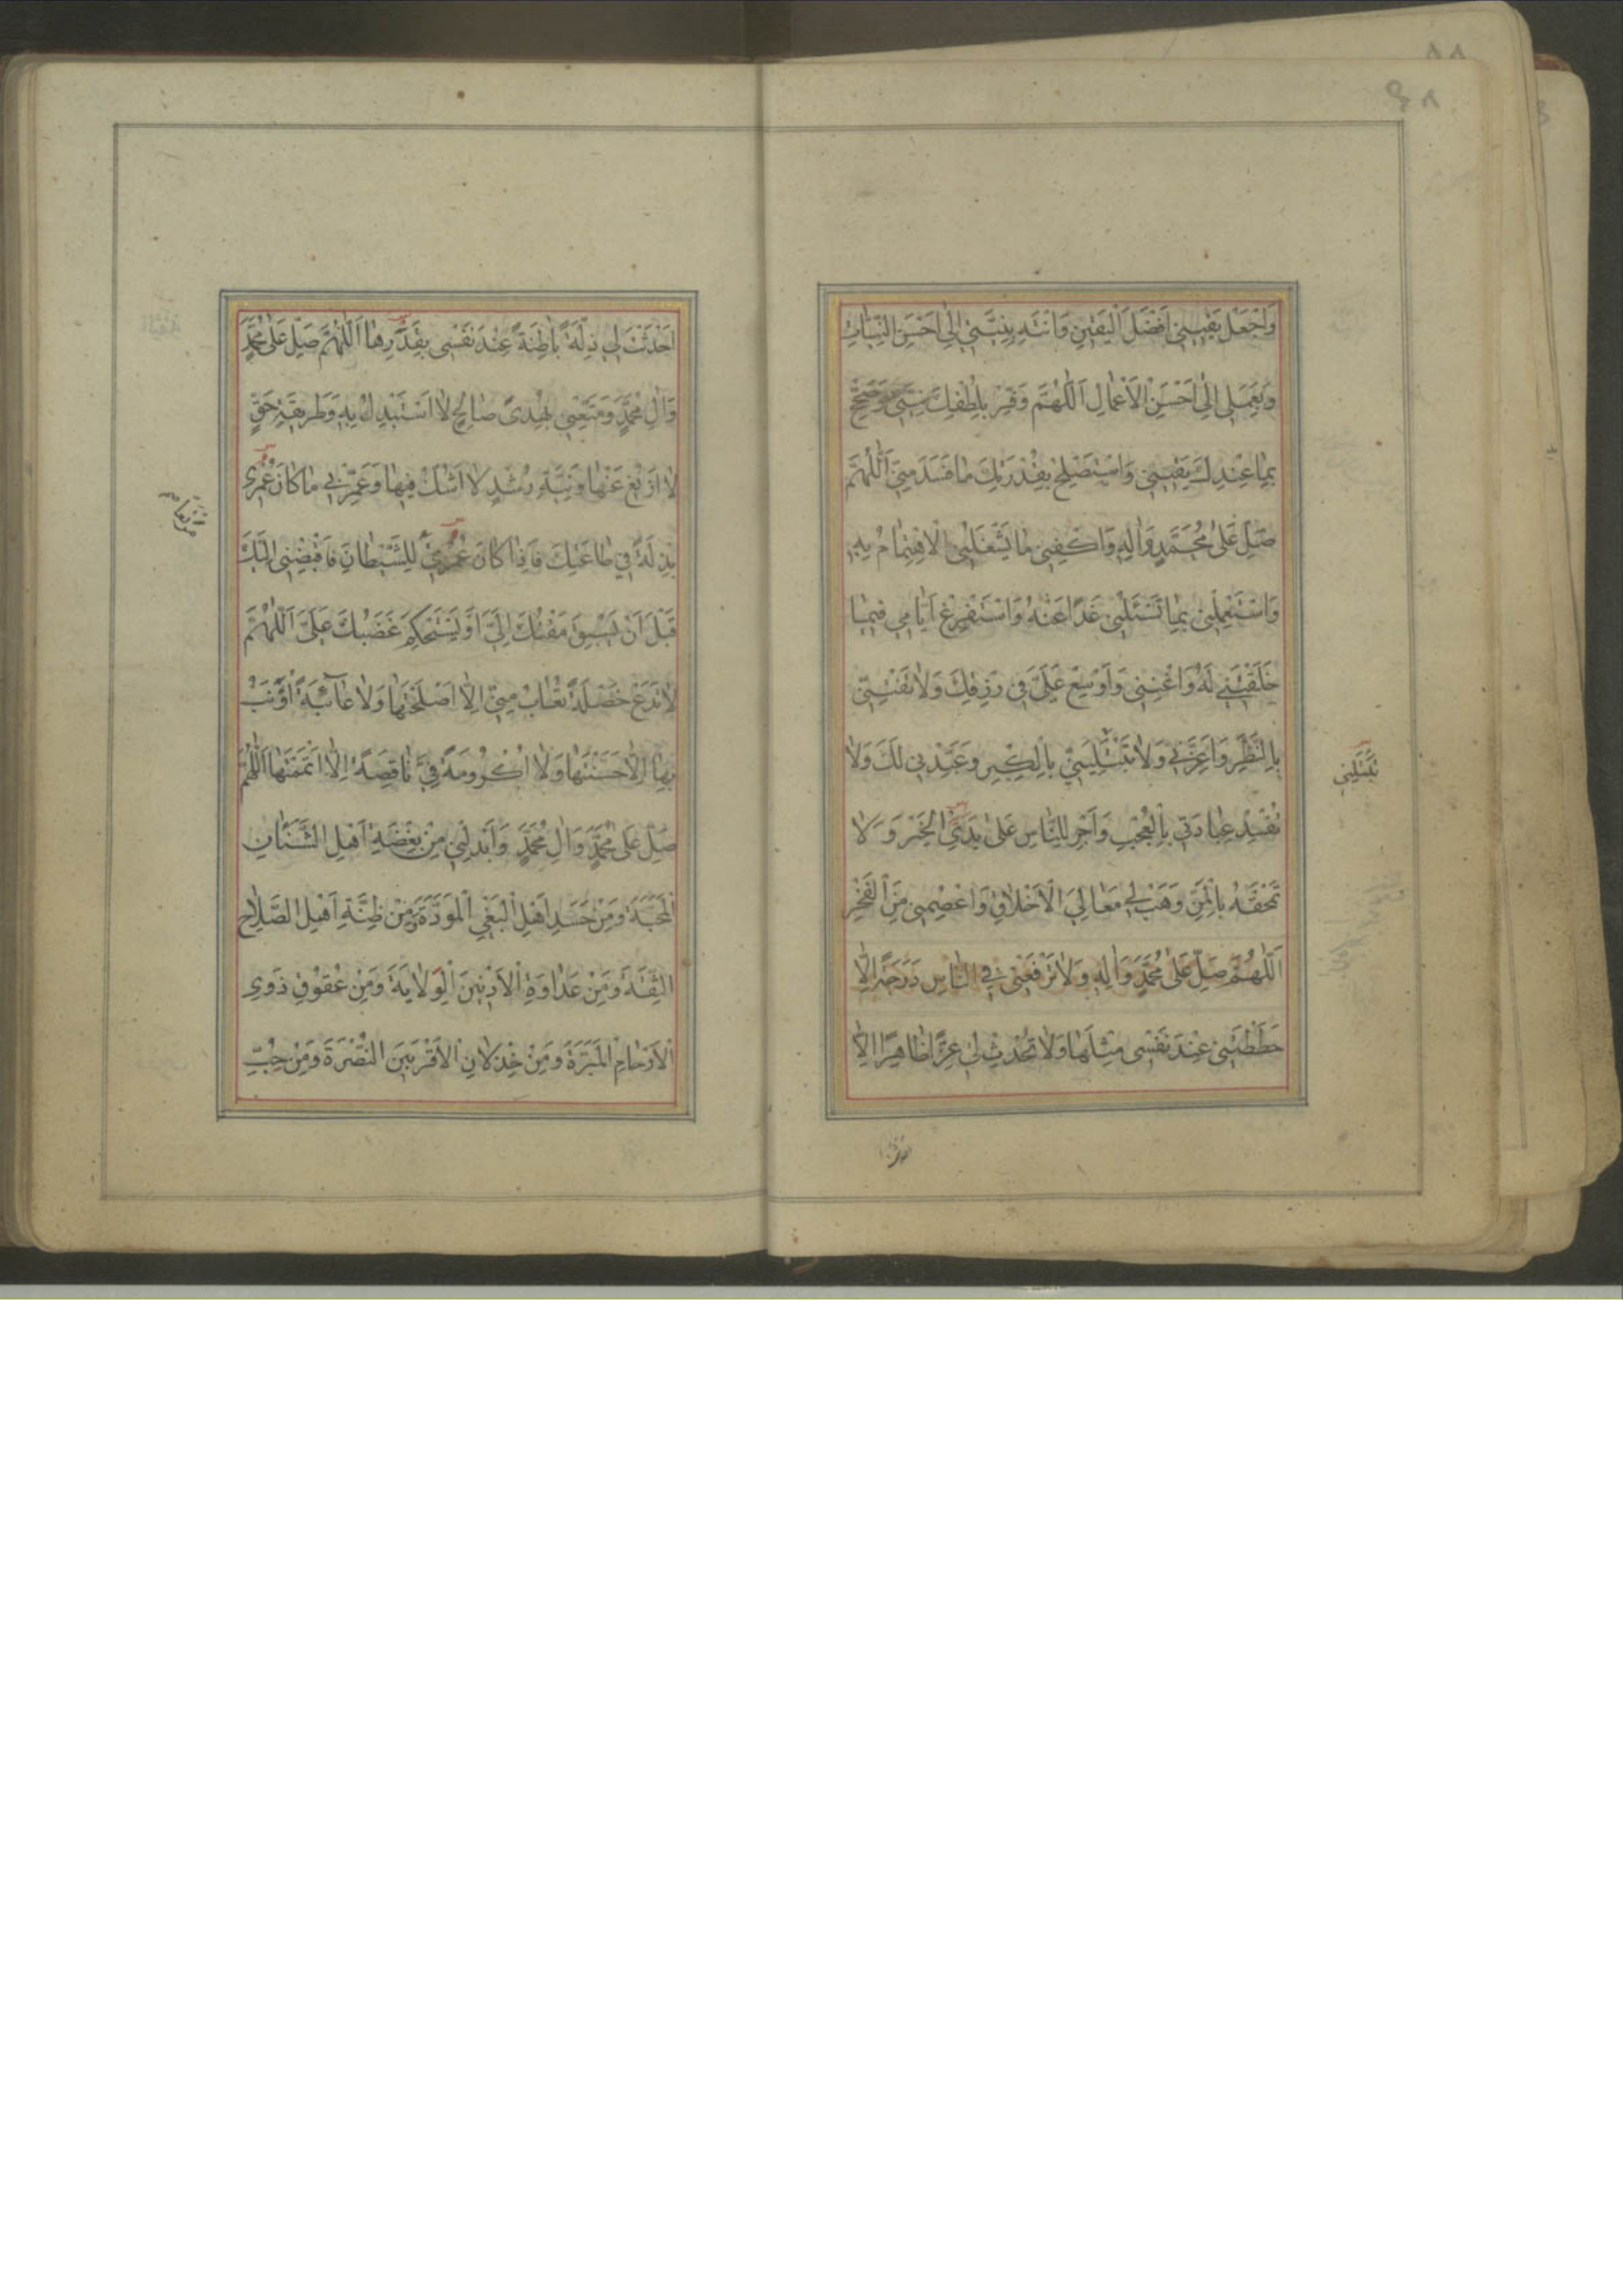 وَاجْعَلْ يَقينى اَفْضَلَ الْيَقينِ وَانْتَهِ بِنِيَّتى اِلى اَحْسَنِ النِّيّاتِ
وَبِعَمَلى اِلى اَحْسَنِ الْاَعْمالِ اَللّهُمَّ وَفِّرْ بِلُطْفِكَ نِيَّتى وَصَحِّحْ
بِما عِنْدَكَ يَقينى وَاسْتَصْلِحْ بِقُدْرَتِكَ ما فَسَدَ مِنّى اَللّهُمَّ
صَلِّ عَلى مُحَمَّدٍ وَالِهِ وَاكْفِنى ما يَشْغَلُنِى الْاِهْتِمامُ بِهِ
وَاسْتَعْمِلْنى بِما تَسْئَلُنى غَدًا عَنْهُ وَاسْتَفْرِغْ اَيّامى فيما
خَلَقْتَنى لَهُ وَاَغْنِنى وَاَوْسِعْ عَلَىَّ فى رِزْقِكَ وَلا تَفْتِنّى
بِالنَّظَرِ وَاَعِزَّنى وَلا تَبْتَلِيَنّى بِالْكِبْرِ وَعَبِّدْنى لَكَ وَلا
تُفْسِدْ عِبادَتى بِالْعُجْبِ وَاَجْرِ لِلنّاسِ عَلى يَدَىَّ الْخَيْرَ وَلا
تَمْحَقْهُ بِالْمَنِّ وَهَبْ لى مَعالِىَ الْاَخْلاقِ وَاعْصِمْنى مِنَ الْفَخْرِ
اَللّهُمَّ صَلِّ عَلى مُحَمَّدٍ وَالِهِ وَلا تَرْفَعْنى فى النّاسِ دَرَجَةً اِلّا
حَطَطْتَنى عِنْدَ نَفْسى مِثْلَها وَلا تُحْدِثْ لى عِزًّا ظاهِرًا اِلّا
تَبْتَلِيَنى
اَحْدَثْتَ لى ذِلَّةً باطِنَةً عِنْدَ نَفْسى بِقَدَرِها اَللّهُمَّ صَلِّ عَلى مُحَمَّدٍ
وَالِ مُحَمَّدٍ وَمَتِّعْنى بِهُدىً صالِحٍ لا اَسْتَبْدِلُ بِهِ وَطَريقَةِ حَقٍّ
لا اَزيغُ عَنْها وَنِيَّةِ رُشْدٍ لا اَشُكُّ فيها وَعَمِّرْنى ما كانَ عُمْرى
بِذْلَةً فى طاعَتِكَ فَاِذا كانَ عُمْرى لِلشَّيْطانِ فَاقْبِضْنى اِلَيْكَ
قَبْلَ اَنْ يَسْبِقَ مَقْتُكَ اِلَىَّ اَوْ يَسْتَحْكِمَ غَضَبُكَ عَلَىَّ اَللّهُمَّ
لا تَدَعْ خَصْلَةً تُعابُ مِنّى اِلّا اَصْلَحْتَها وَلا عآئِبَةً اُؤَنَّبُ
بِها اِلّا حَسَّنْتَها وَلا اُكْرُومَةً فِىَّ ناقِصَةً اِلّا اَتْمَمْتَها اَللّهُمَّ
صَلِّ عَلى مُحَمَّدٍ وَالِ مُحَمَّدٍ وَاَبْدِلْنى مِنْ بِغْضَةِ اَهْلِ الشَّنَئانِ
الْمَحَبَّةَ وَمِنْ حَسَدِ اَهْلِ الْبَغْىِ الْمَوَدَّةَ وَمِنْ ظِنَّةِ اَهْلِ الصَّلاحِ
الثِّقَةَ وَمِنْ عَداوَةِ الْاَدْنَيْنَ الْوَلايَةَ وَمِنْ عُقُوقِ ذَوِى
الْاَرْحامِ الْمَبَرَّةَ وَمِنْ خِذْلانِ الْاَقْرَبينَ النُّصْرَةَ وَمِنْ حُبِّ